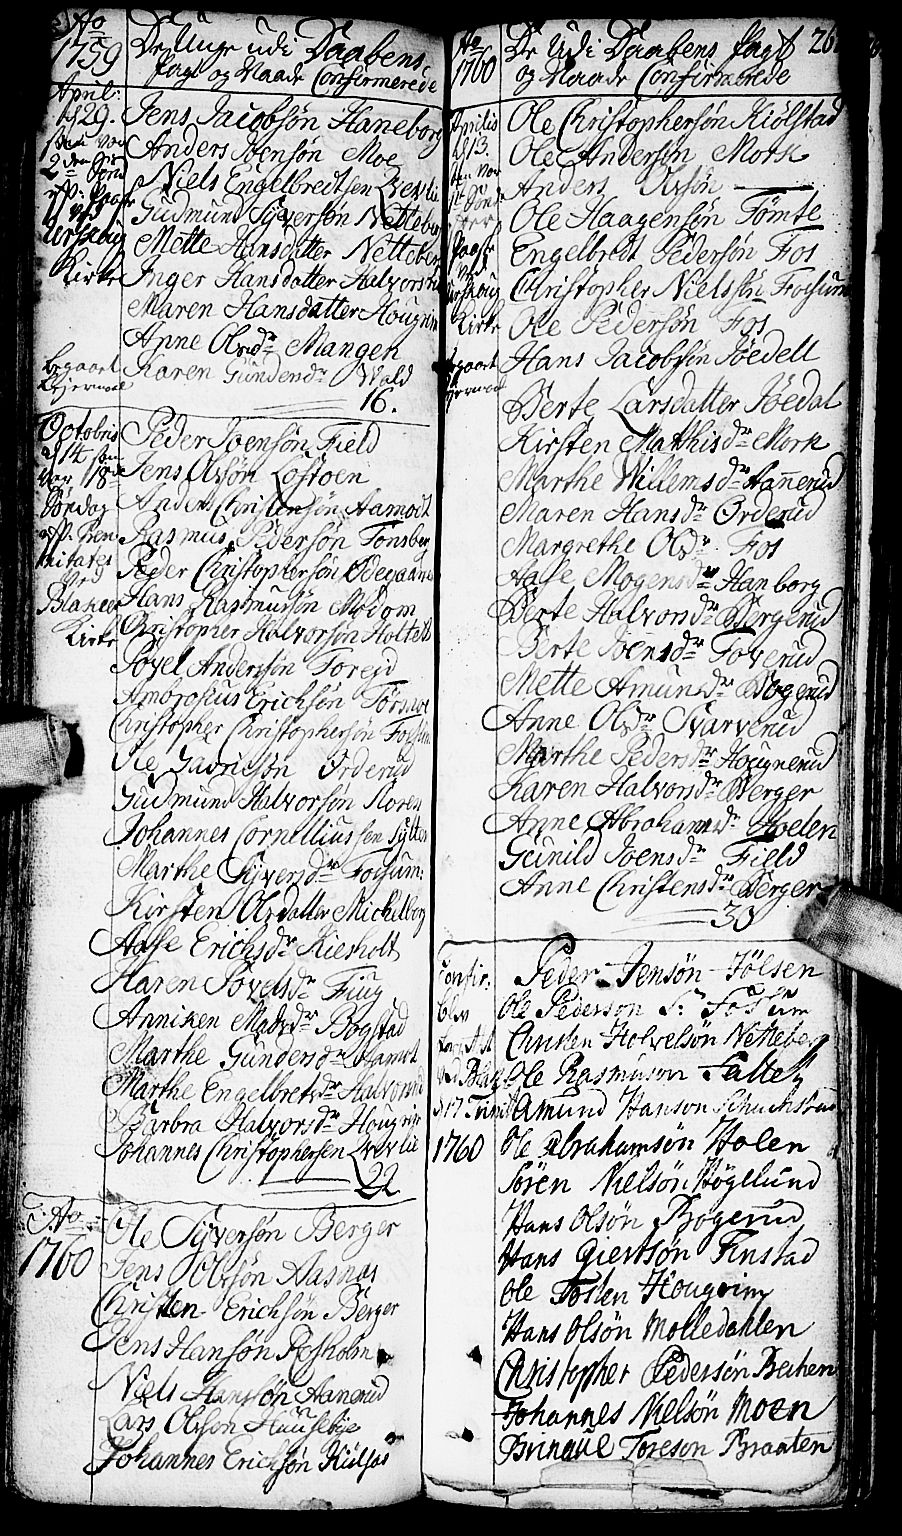 Ao
1759
De Unge udi Daabens
Pagt og Naade Confirmerede
April:
d 29.
2den
Urskoug
Kirke
Jens Jacobsön Haneborg
Anders Joensön Moe
Niels Engelbredtsen
Gudmund Syversön Netteber
Mette Hansdatter Netteber
Inger Hansdatter Halvors
Maren Hansdatter Hougn
Anne Olvsdr Mangen
Karen Gundersdr Wald
16.
Octobris
d 14
var 18de
Söndag
Trinitates
ved
Blakier
Kirke
Peder Joensön Field
Jens Olvsön Loftoen
Anders Christensön Aamodt
Rasmus Pedersön Tonsberg
Peder Christophersön Ödegaard
Hans Rasmussön Modom
Christopher Halvorsön Holteb
Povel Andersön Toreud
Ambrosius Erichsön Törsmoe
Christopher Christophersön Fossum
Ole Gabrielsön Orderud
Gudmund Halvorsön Roren
Johannes Cornelliussen Sylte
Marthe Syversdr Fossum:
Kirsten Olsdatter Michelborg
Aasse Erichsdr Kiesholt
Karen Povelsdr Fiug
Anniken Madsdr Bogstad
Marthe Gundersdr Aamodt
Marthe Engelbretsdr Halvorsrud
Barbra Halvorsdr Hougrim
Johannes Christophersen
22
Ao
1760
Ole Syversön Berger
Jens Olvsön Aasnas
Christen Erichsön Berger
Jens Hansön Resholm
Niels Hansön Hanerud
Lars Olvson Hausebye
Johannes Erichsön Kulsas
Ao
1760
De Udi Daabens Pagt
og Naade Confirmerede
26
Aprilis
d 13.
Paaske
ved
Urskoug
Kirke
Ole Christophersön Kiölstad
Ole Andersön Mork
Anders Olvsön
Ole Haagensön Tömte
Engelbredt Pedersön Fos
Christopher Nielssön Fossum
Ole Pedersön Fos
Hans Jacobsön Jöedell
Berte Larsdatter Jöedal
Kirsten Mathisdr Mork
Marthe Willemsdr Hannerud
Maren Hansdr Orderud
Margrethe Olsdr Fos
Aasse Mogensdr Hanborg
Berte Halvorsdr Bergerud
Berte Joensdr Toverud
Mette Amundsdr Bogerud
Anne Olsdr Svarverud
Marthe Pedersdr Hougnerud
Karen Halvorsdr Berger
Anne Abrahamsdr Holen
Gunild Joensdr Field
Anne Christensdr Berger
30
Confir:
1760
Peder Jensön Jölsen
Ole Pederson S: Fossum
Christen Holvelsön Netteberg
Ole Rasmuson Falte
Amund Hanson
Ole Abrahamsön Holen
Sören Nielsön Högelund
Hans Olsön Bogerud
Hans Giertsön Finstad
Ole Tosten Hougrim
Hans Olsön Molledahlen
Christopher Pedersön Bechen
Johannes Nielsön Moen
Brinauel Toreson Braaten